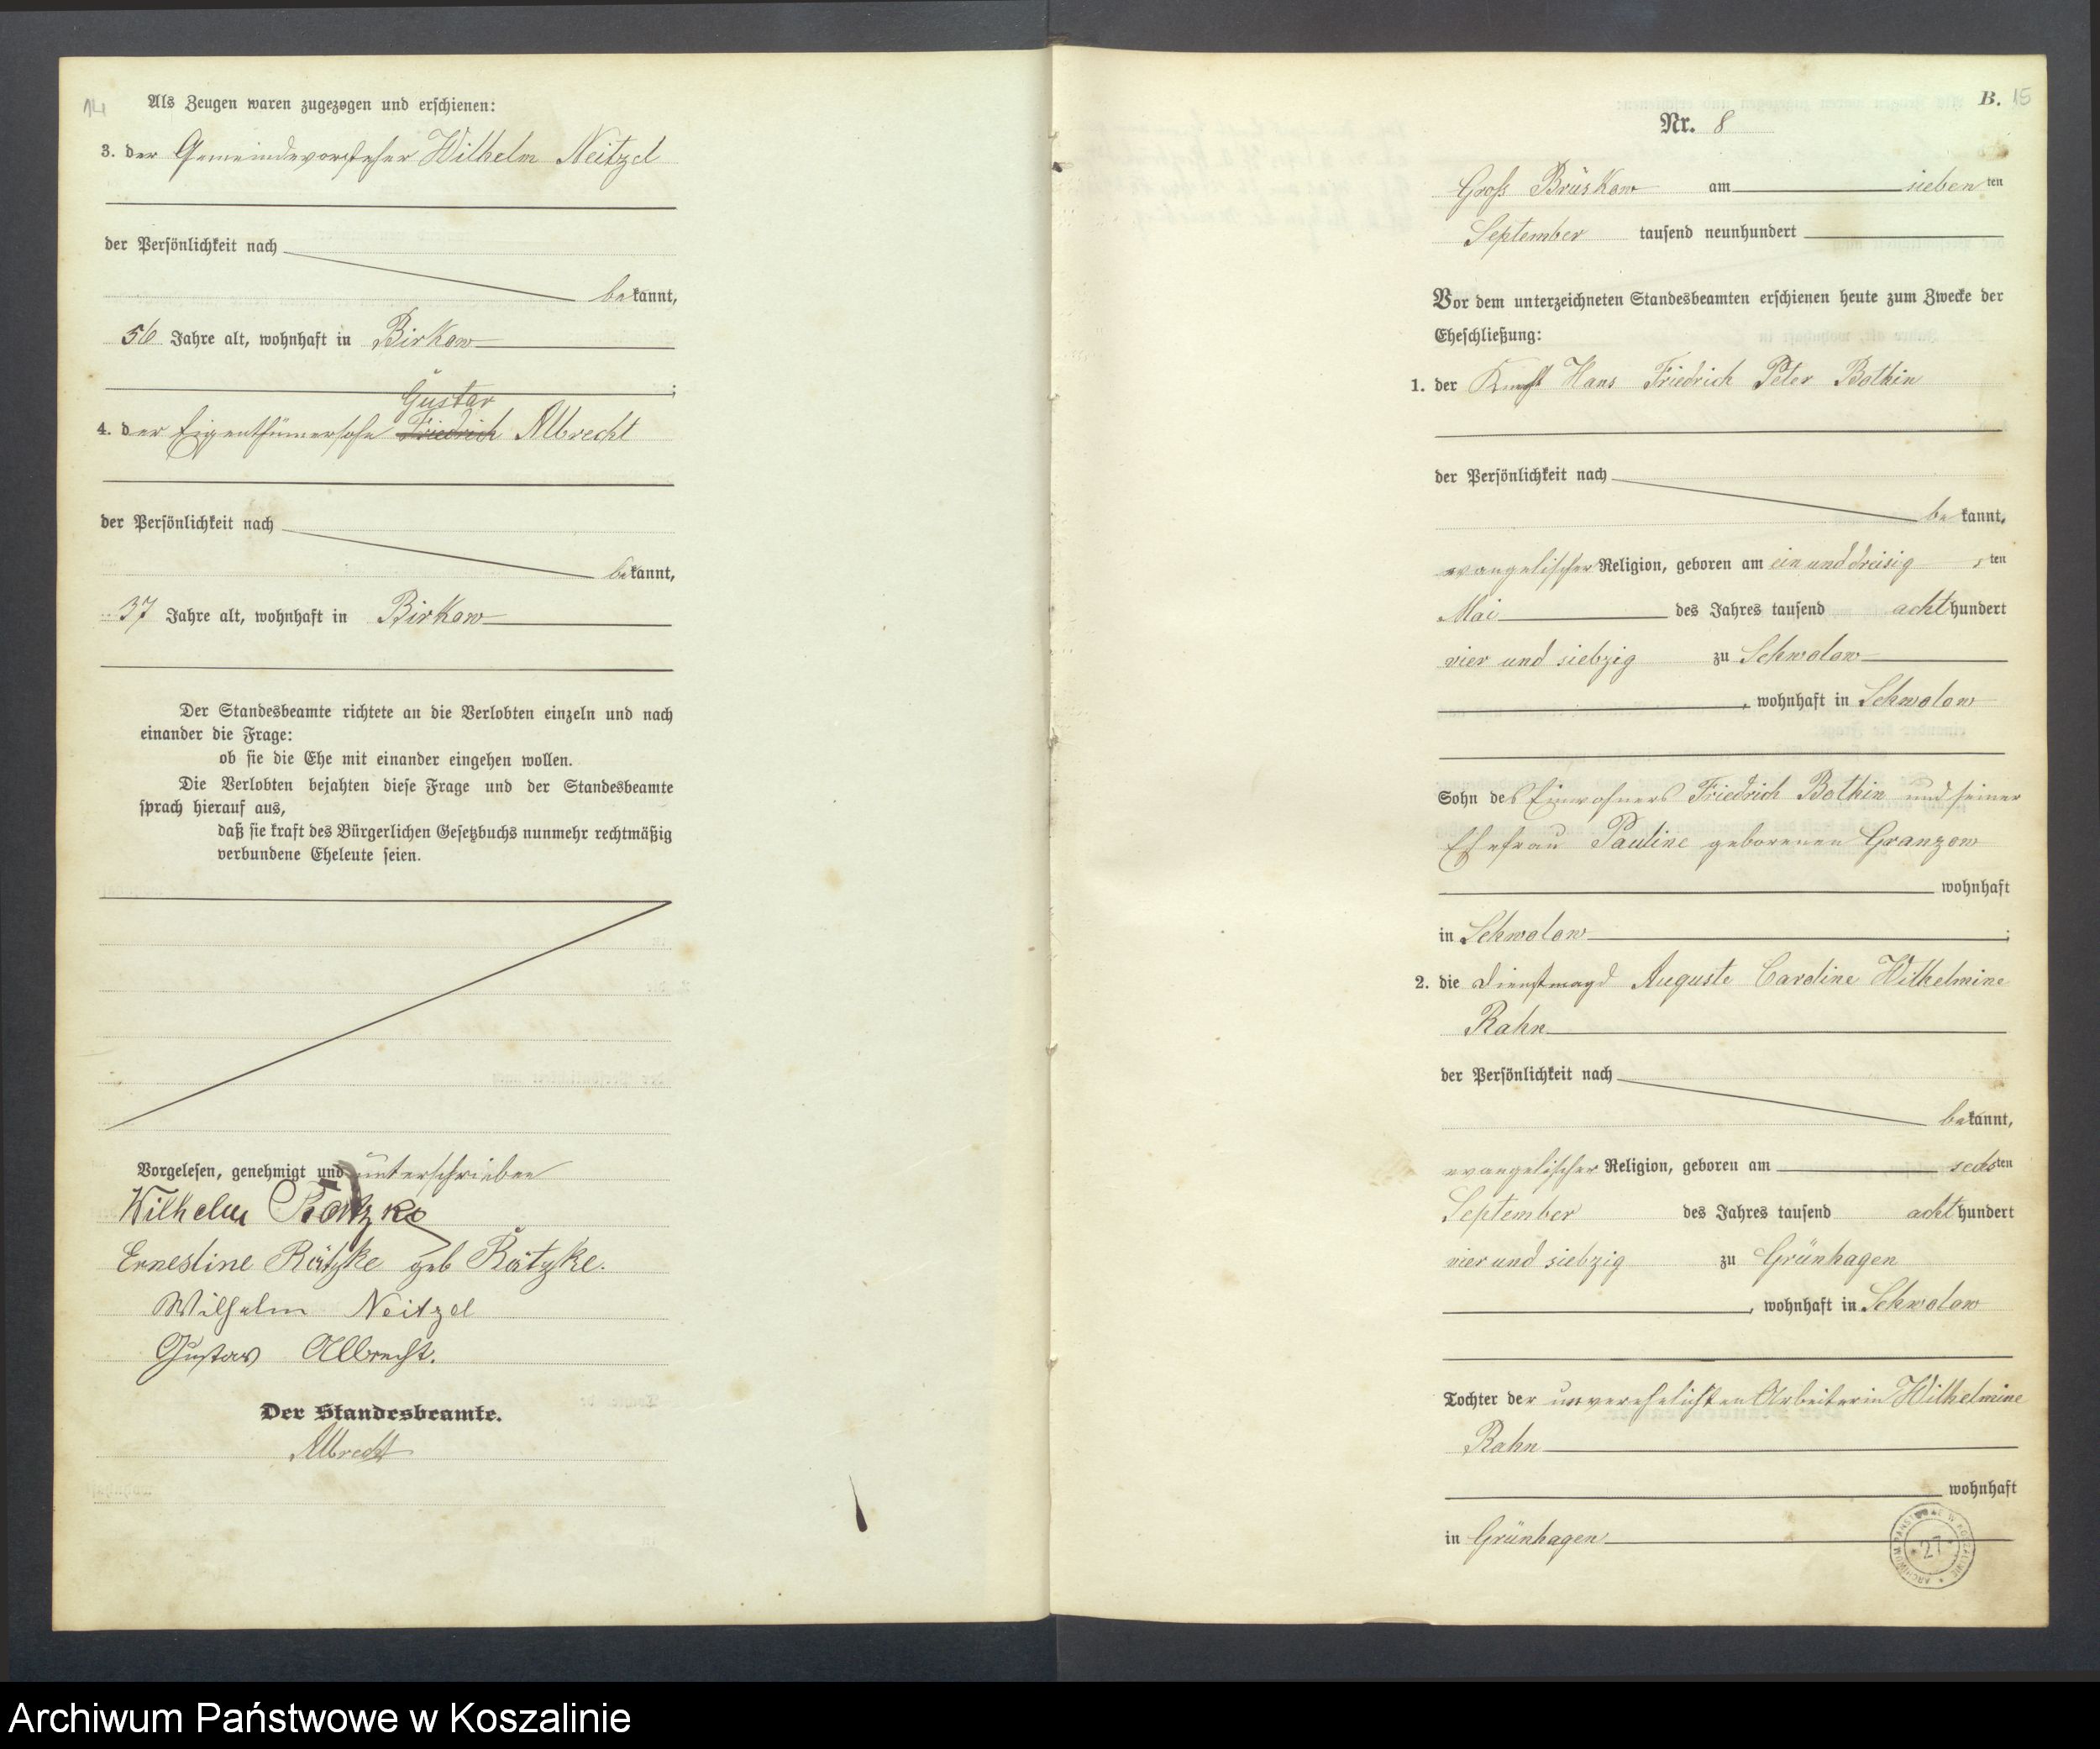 14
Als Zeugen waren zugezogen und erschienen:
3. der Gemeindevorsteher Wilhelm Neitzel
der Persönlichkeit nach
bekannt,
56 Jahre alt, wohnhaft in Birkow
;
Gustav
4. der Eigenthümersohn Friedrich Albrecht
der Persönlichkeit nach
bekannt,
37 Jahre alt, wohnhaft in Birkow
Der Standesbeamte richtete an die Verlobten einzeln und nach
einander die Frage:
ob sie die Ehe mit einander eingehen wollen.
Die Verlobten bejahten diese Frage und der Standesbeamte
sprach hierauf aus,
daß sie kraft des Bürgerlichen Gesetzbuchs nunmehr rechtmäßig
verbundene Eheleute seien.
Vorgelesen, genehmigt und unterschrieben
Wilhelm
Ernestine Rätzke geb Rätzke.
Wilhelm Neitzel
Gustav Albrecht.
Der Standesbeamte.
Albrecht
B. 15
Nr. 8
Gross Brüskow am siebenten
September tausend neunhundert
Vor dem unterzeichneten Standesbeamten erschienen heute zum Zwecke der
Eheschließung:
1. der Knecht Hans Friedrich Peter Bothin
der Persönlichkeit nach
bekannt,
evangelischer Religion, geboren am ein und dreisigsten
Mai des Jahres tausend achthundert
vier und siebzig zu Schwolow
, wohnhaft in Schwolow
Sohn des Einwohners Friedrich Bothin und seiner
Ehefrau Pauline geborenen Granzow
wohnhaft
in Schwolow ;
2. die Dienstmagd Auguste Caroline Wilhelmine
Rahn
der Persönlichkeit nach
bekannt,
evangelischer Religion, geboren am sechsten
September des Jahres tausend achthundert
vier und siebzig zu Grünhagen
, wohnhaft in Schwolow
Tochter der unverehelichten Arbeiterin Wilhelmine
Rahn
wohnhaft
in Grünhagen
ARCHIWUM PAŃSTWOWE W KOSZALINIE
27
Archiwum Państwowe w Koszalinie